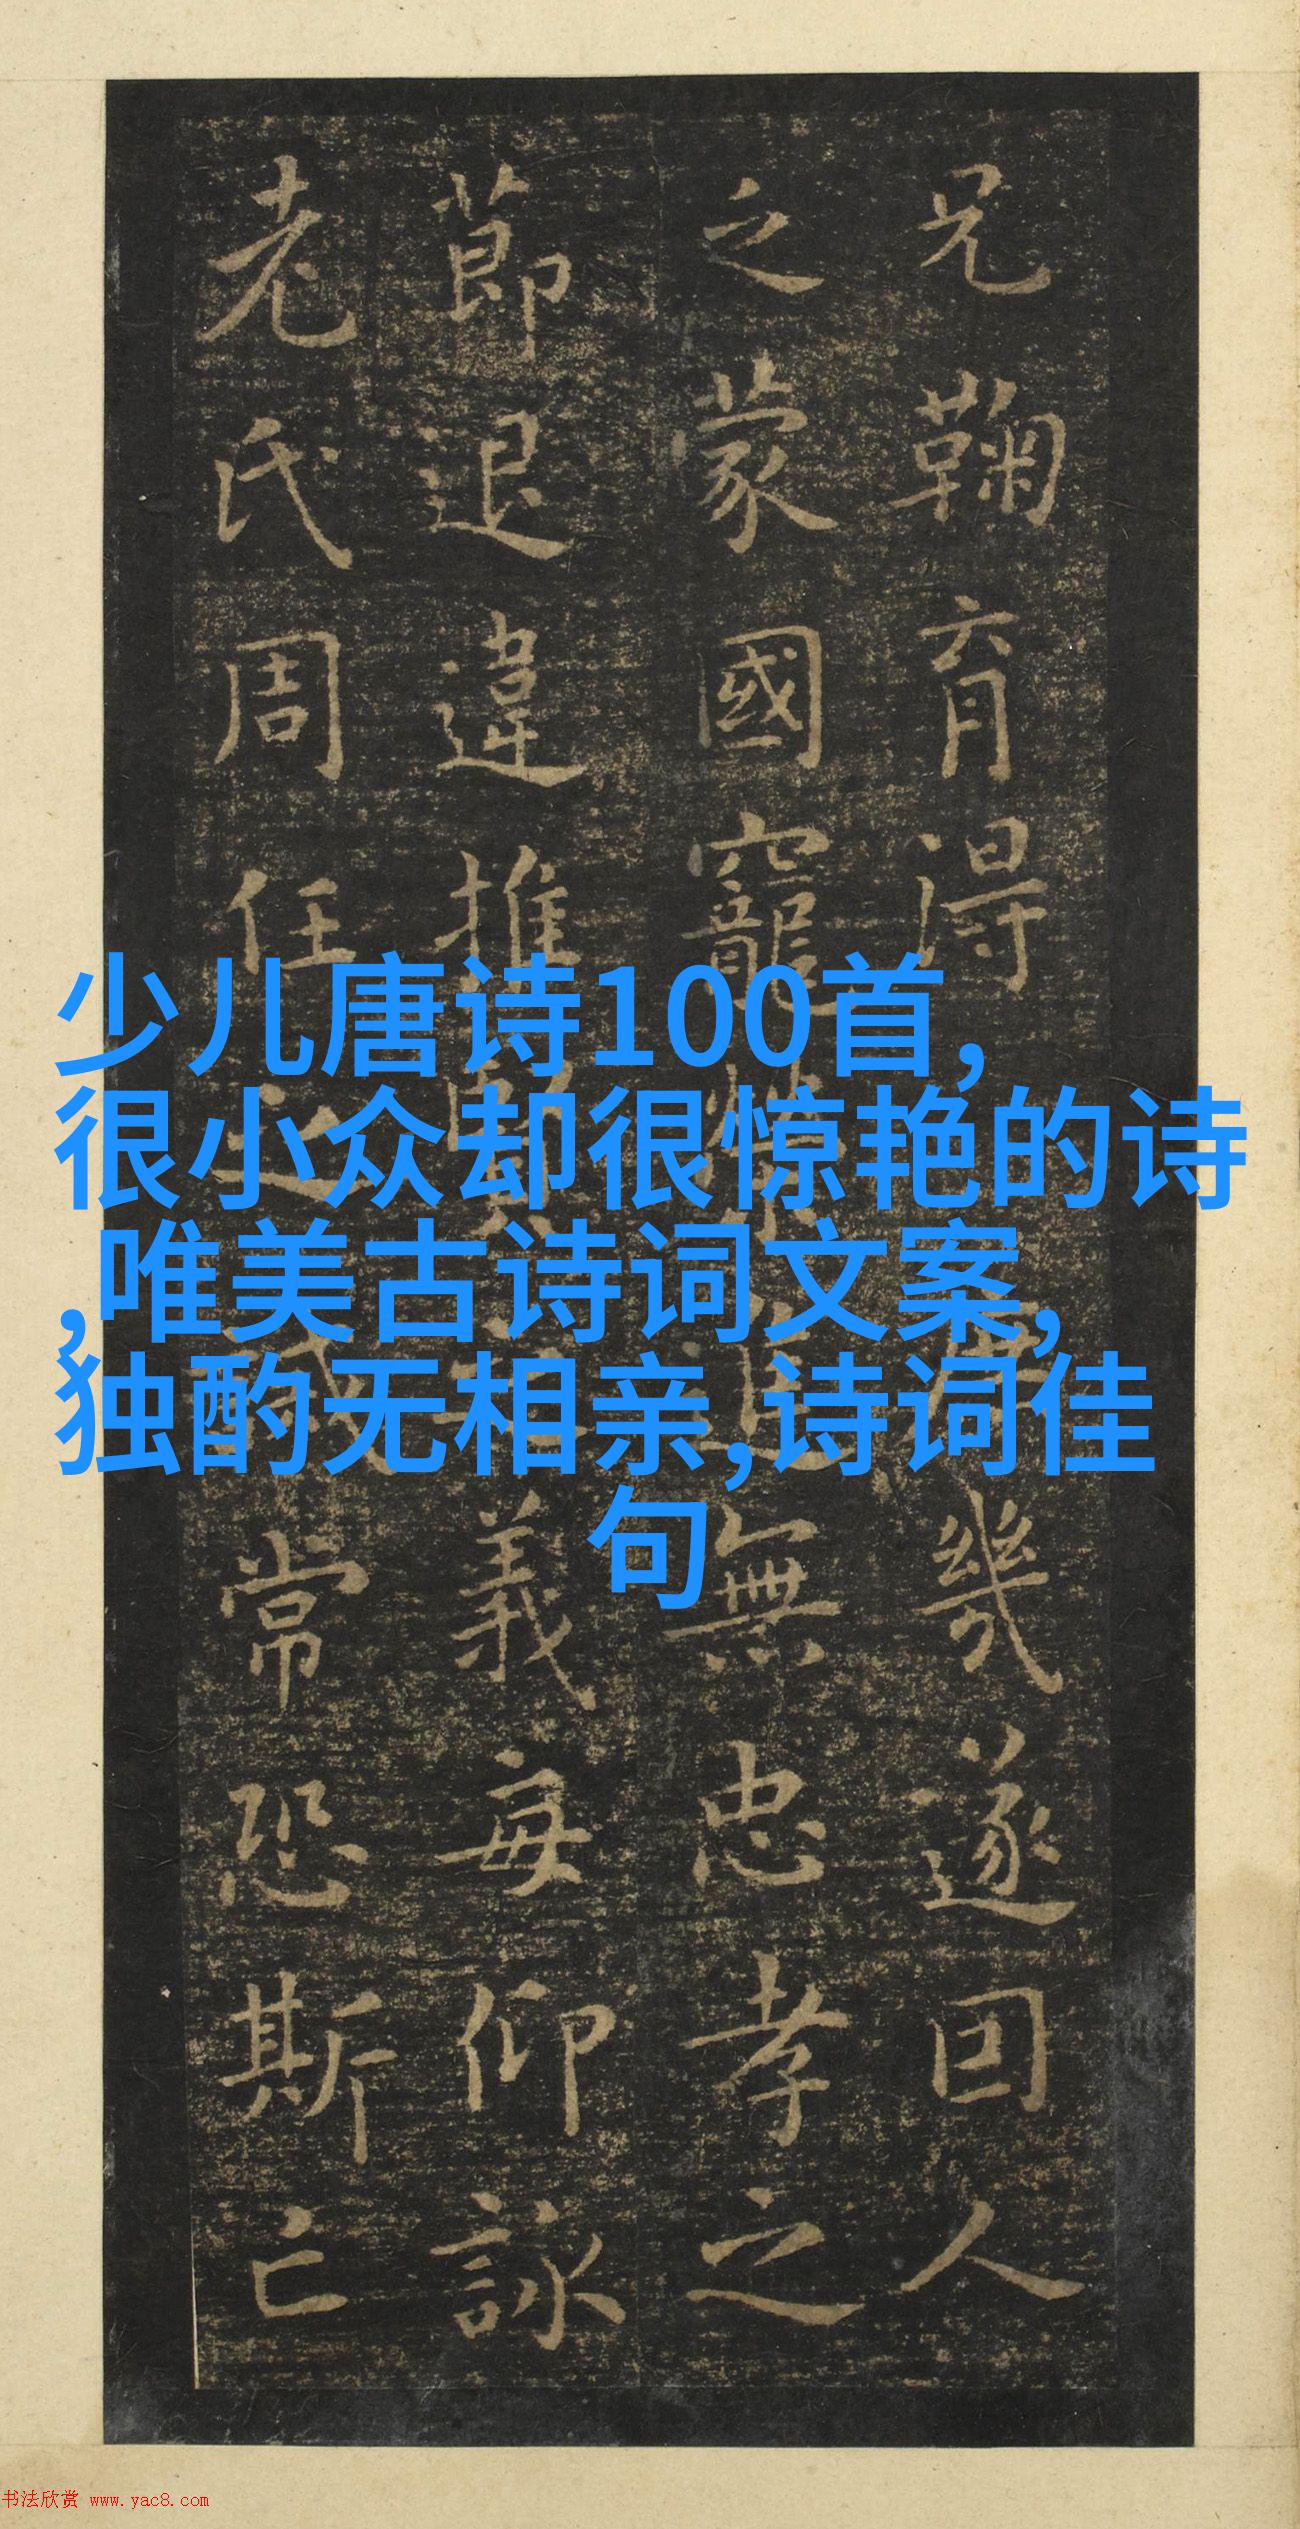 兄鞠育得幾遂回人
之蒙國寵榮進無忠孝之
莭退違推賢之義每仰詠
老氏周任之誡常恐斯亡
少儿唐诗100首,
很小众却很惊艳的诗
,唯美古诗词文案,
独酌无相亲,诗词佳
句
书法欣赏 www.yac8.com